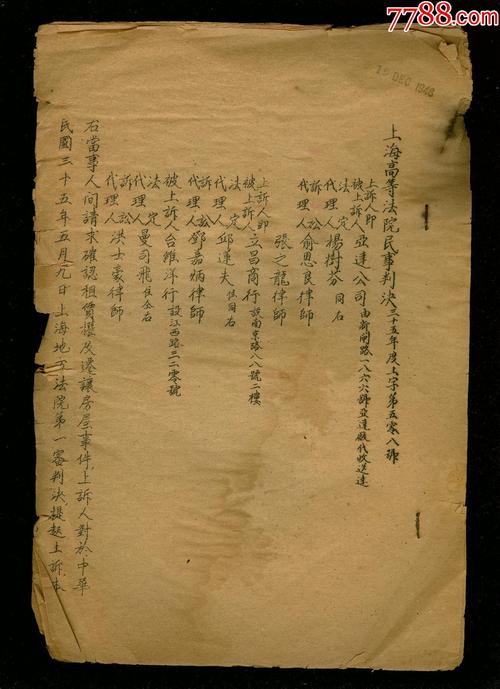 7788.com
19 DEC 1946
上海高等法院民事判決 三十五年度上字第五零八號
上訴人即
被上訴人 亞達公司 由新閘路一八六六號亞達廠代收送達
法定
代理人 楊樹芬 同右
訴訟
代理人 俞恩良律師
張之龍律師
上訴人即
被上訴人 立昌商行 設南京路八八號二樓
法定
代理人 邱蓮夫 住同右
訴訟
代理人 鄧嘉炳律師
被上訴人 台維洋行 設江西路三二零號
法定
代理人 曼司飛 住仝右
訴訟
代理人 洪士豪律師
右當事人間請求確認租賃權及遷讓房屋事件上訴人對於中華
民國三十五年五月九日上海地方法院第一審判決提起上訴本